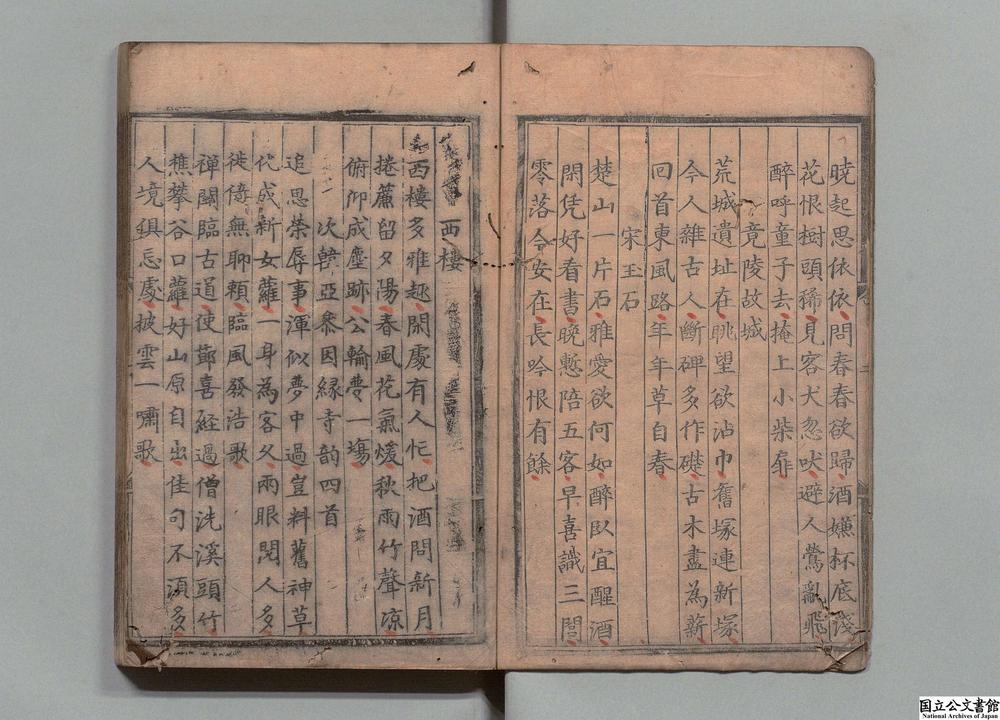 曉起思依依問春春欲歸酒嫌杯底淺
花恨樹頭稀見客犬忽吠避人鶯亂飛
醉呼童子去掩上小柴扉
竟陵故城
荒城遺址在眺望欲沾巾舊塚連新塚
今人雜古人斷碑多作礎古木盡為薪
回首東風路年年草自春
宋玉石
楚山一片石雅愛欲何如醉臥宜醒酒
閑凭好看書晚慙陪五客早喜識三閭
零落今安在長吟恨有餘
西樓
西樓多雅趣閑處有人忙把酒問新月
捲簾留夕陽春風花氣煖秋雨竹聲凉
俯仰成塵跡公輸夢一場
次韓亞叅因緣寺韵四首
追思榮辱事渾似夢中過豈料舊神草
化成新女蘿一身為客久兩眼閱人多
徙倚無聊賴臨風發浩歌
禪關臨古道使節喜経過僧洗溪頭竹
樵攀谷口蘿好山原自出佳句不湏多
人境俱忘處披雲一嘯歌
国立公文書館
National Archives of Japan